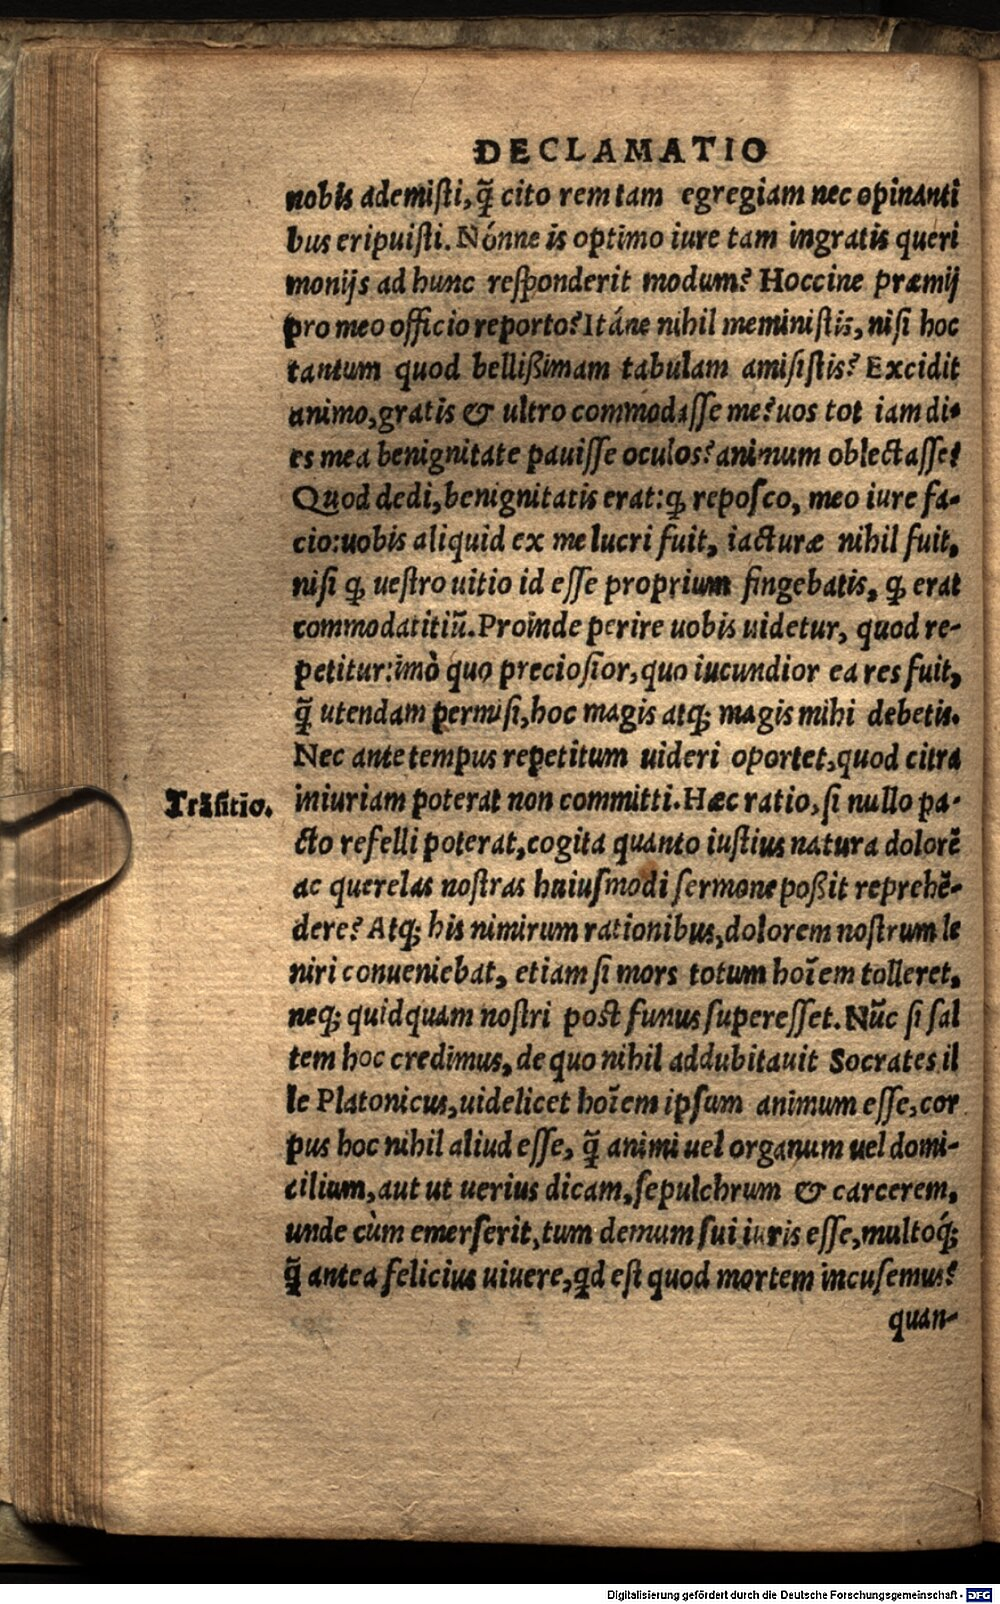 DECLAMATIO
nobis ademisti, q̃ cito rem tam egregiam nec opinanti
bus eripuisti. Nónne is optimo iure tam ingratis queri
monijs ad hunc responderit modum? Hoccine præmij
pro meo officio reporto? Itáne nihil meministis, nisi hoc
tantum quod bellißimam tabulam amisistis? Excidit
animo, gratis & ultro commodasse me? uos tot iam di-
es mea benignitate pauisse oculos? animum oblectasse?
Quod dedi, benignitatis erat: ꝙ reposco, meo iure fa-
cio: uobis aliquid ex me lucri fuit, iacturæ nihil fuit,
nisi ꝙ uestro uitio id esse proprium fingebatis, ꝙ erat
commodatitiũ. Proinde perire uobis uidetur, quod re-
petitur: imò quo preciosior, quo iucundior ea res fuit,
q̃ utendam permisi, hoc magis atq; magis mihi debetis.
Nec ante tempus repetitum uideri oportet, quod citra
Trãsitio. iniuriam poterat non committi. Hæc ratio, si nullo pa-
cto refelli poterat, cogita quanto iustius natura dolorẽ
ac querelas nostras huiusmodi sermone poßit reprehẽ-
dere? Atq; his nimirum rationibus, dolorem nostrum le
niri conueniebat, etiam si mors totum hoĩem tolleret,
neq; quidquam nostri post funus superesset. Nũc si sal
tem hoc credimus, de quo nihil addubitauit Socrates il
le Platonicus, uidelicet hoĩem ipsum animum esse, cor
pus hoc nihil aliud esse, q̃ animi uel organum uel domi-
cilium, aut ut uerius dicam, sepulchrum & carcerem,
unde cùm emerserit, tum demum sui iuris esse, multoq́;
q̃ antea felicius uiuere, qd est quod mortem incusemus?
quan-
Digitalisierung gefördert durch die Deutsche Forschungsgemeinschaft - DFG